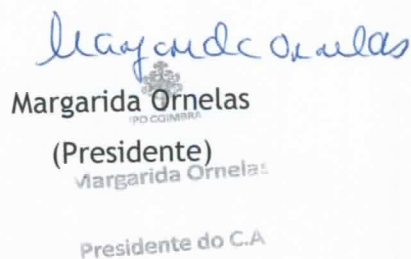 Margarida Ornelas
Margarida Ornelas
IPO COIMBRA
(Presidente)
Margarida Ornelas
Presidente do C.A